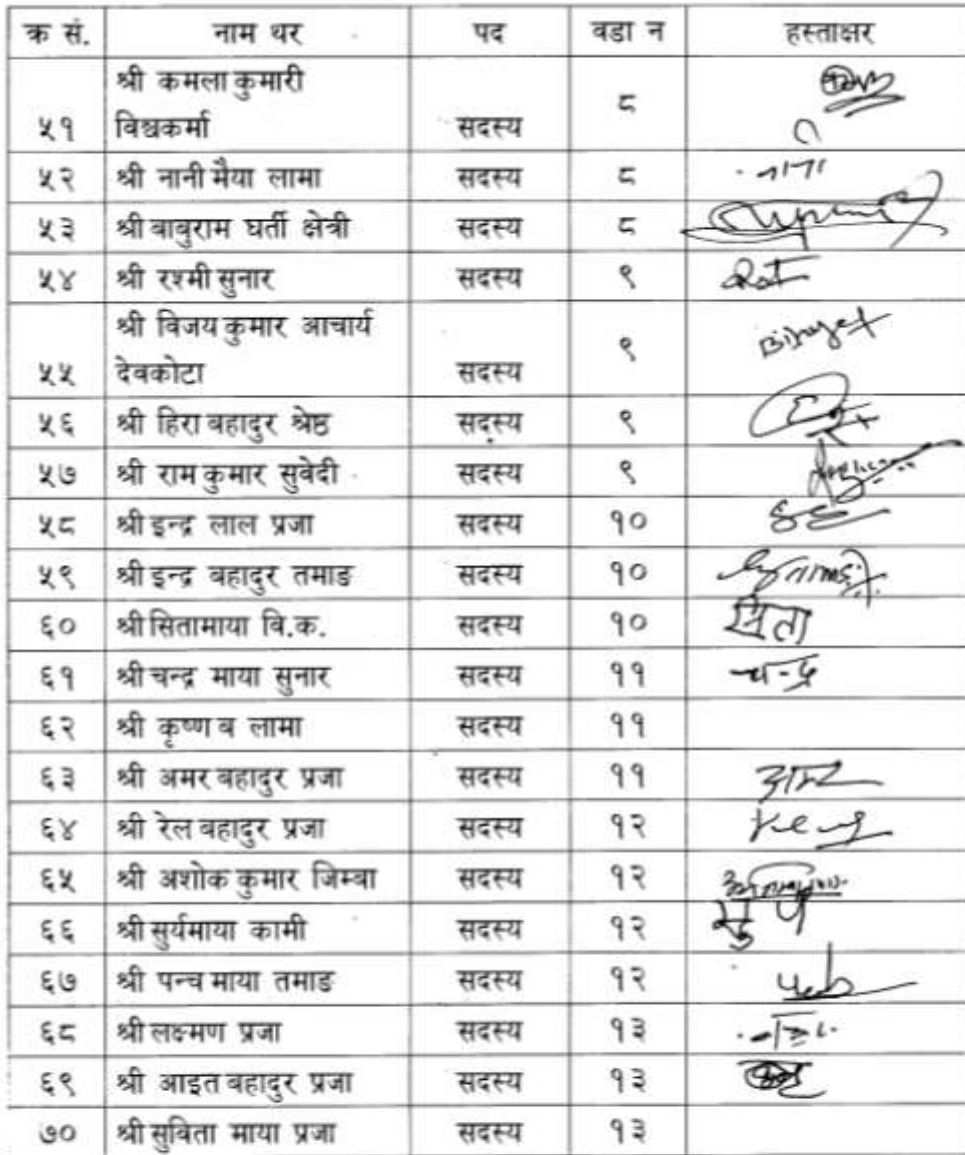 क्र सं. नाम थर पद वडा न हस्ताक्षर
श्री कमला कुमारी
५१ विश्वकर्मा सदस्य ८
५२ श्री नानी मैया लामा सदस्य ८ नानी
५३ श्री बाबुराम घर्ती क्षेत्री सदस्य ८
५४ श्री रश्मी सुनार सदस्य ९
श्री विजय कुमार आचार्य
५५ देवकोटा सदस्य ९
५६ श्री हिरा बहादुर श्रेष्ठ सदस्य ९
५७ श्री राम कुमार सुवेदी सदस्य ९
५८ श्री इन्द्र लाल प्रजा सदस्य १०
५९ श्री इन्द्र बहादुर तमाङ सदस्य १०
६० श्री सितामाया वि.क. सदस्य १० सिता
६१ श्री चन्द्र माया सुनार सदस्य ११ चन्द्र
६२ श्री कृष्ण ब लामा सदस्य ११
६३ श्री अमर बहादुर प्रजा सदस्य ११ अमर
६४ श्री रेल बहादुर प्रजा सदस्य १२
६५ श्री अशोक कुमार जिम्बा सदस्य १२
६६ श्री सुर्यमाया कामी सदस्य १२
६७ श्री पन्च माया तमाङ सदस्य १२
६८ श्री लक्ष्मण प्रजा सदस्य १३
६९ श्री आइत बहादुर प्रजा सदस्य १३
७० श्री सुविता माया प्रजा सदस्य १३